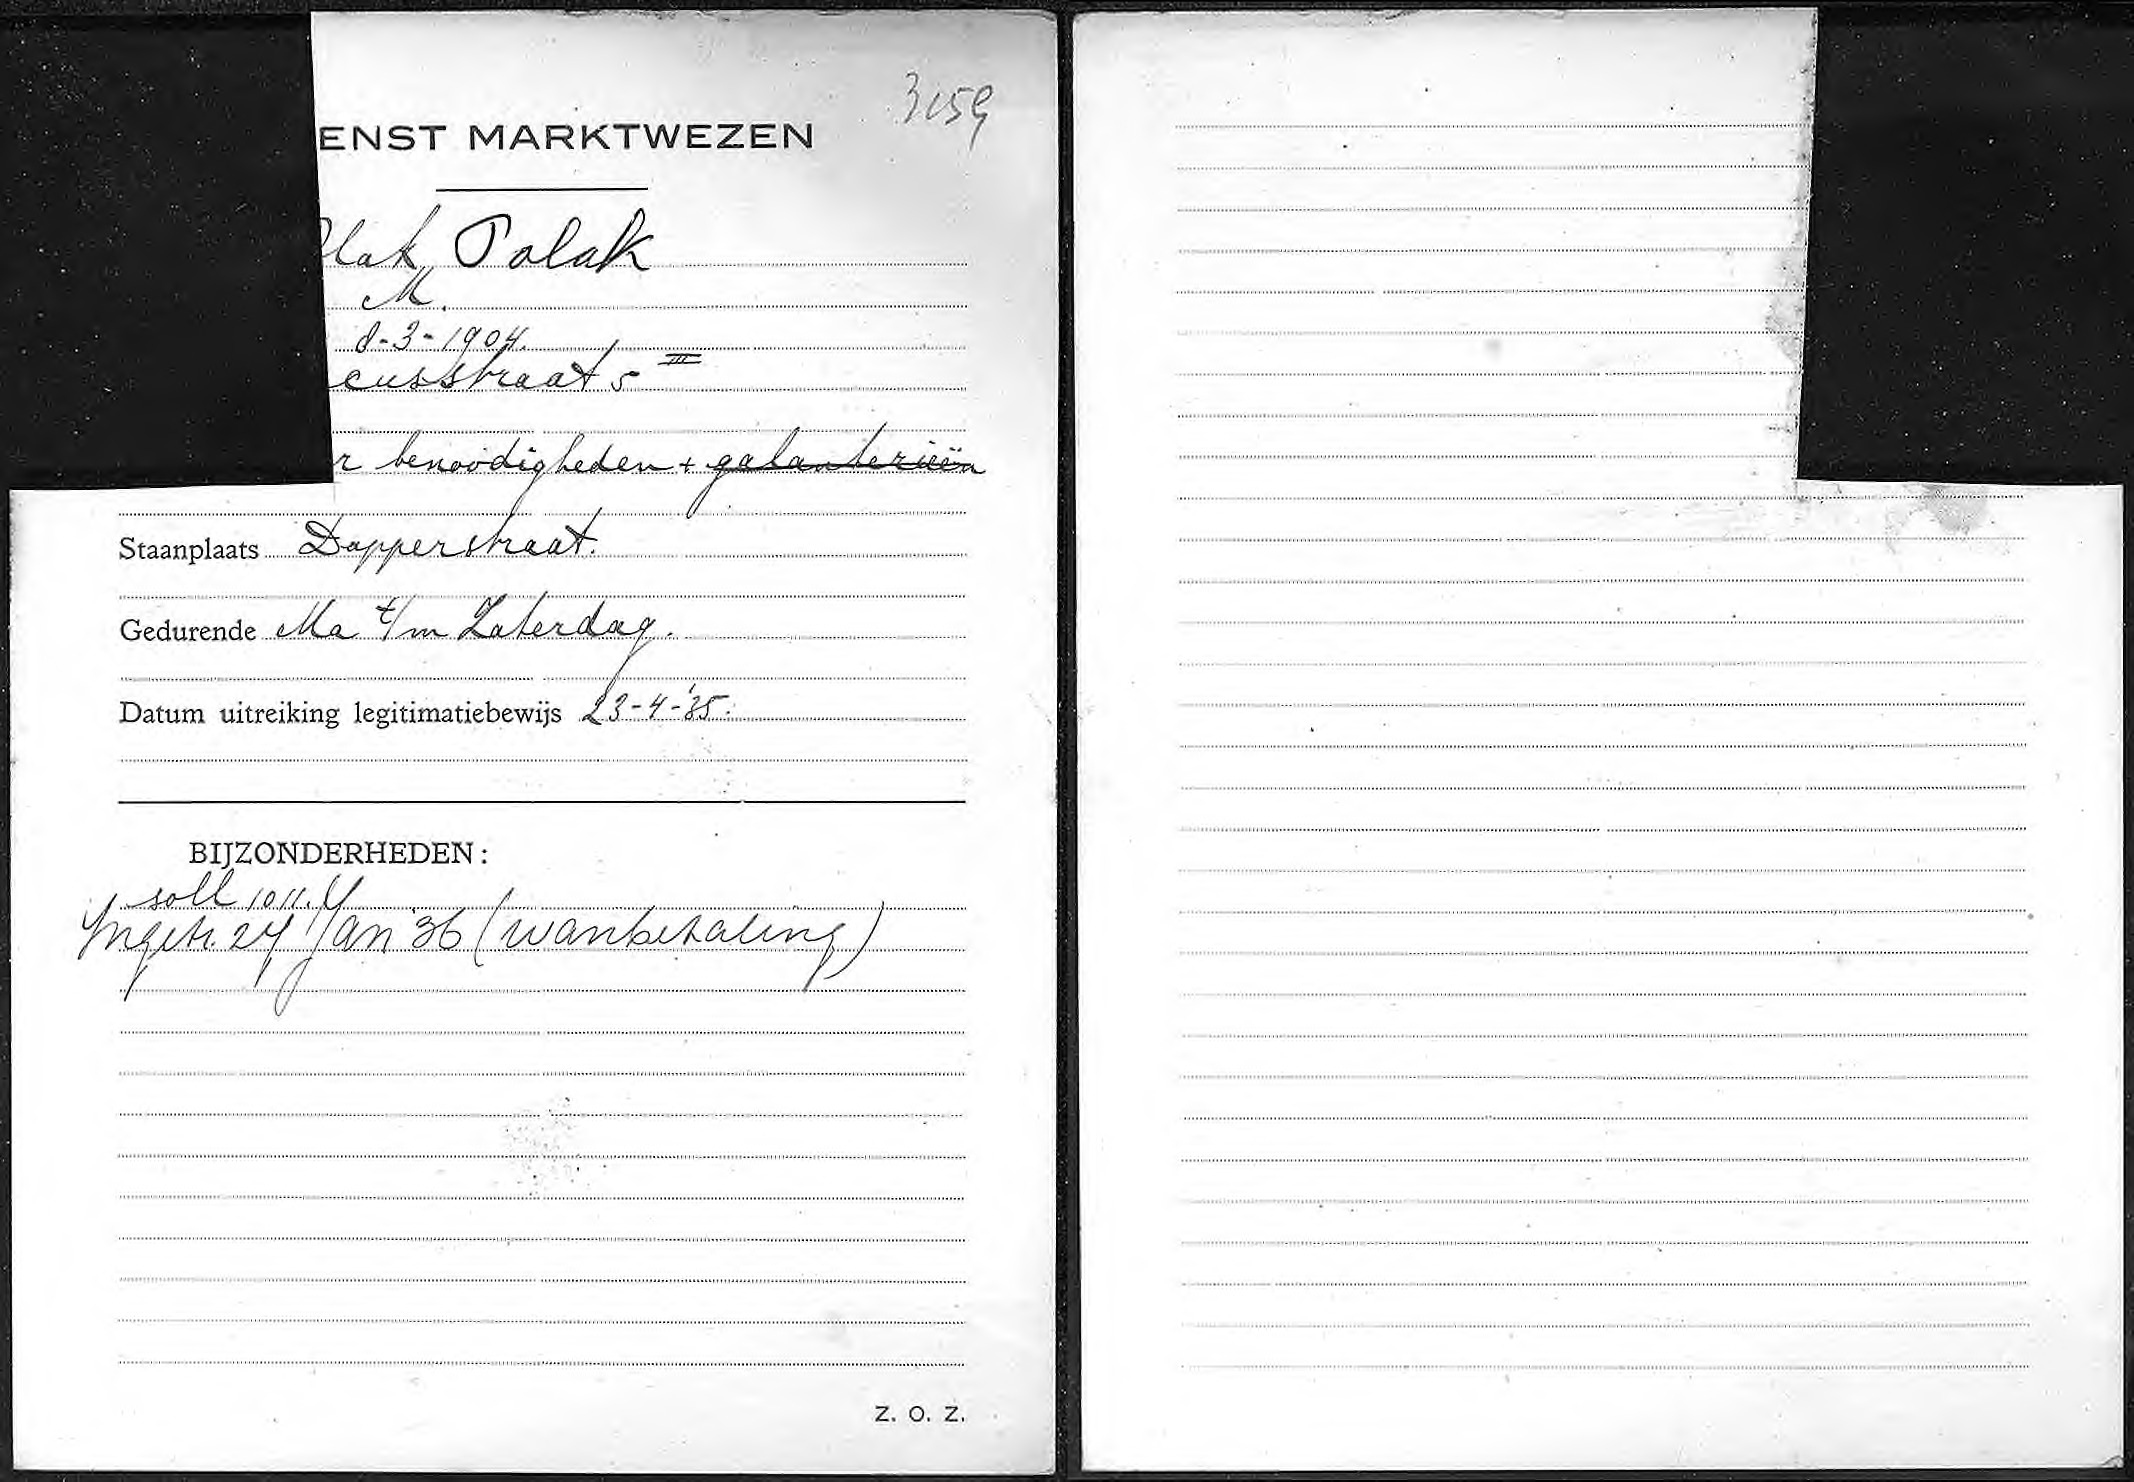 3159
ENST MARKTWEZEN
lak Polak
M.
8-3-1904.
cusstraat 5 III
r benoodigheden + galanterieën
Staanplaats Dapperstraat.
Gedurende Ma t/m Zaterdag.
Datum uitreiking legitimatiebewijs 23-4-'35.
BIJZONDERHEDEN:
soll 1011.
Ingetr. 24 Jan '36 (wanbetaling)
Z. O. Z.